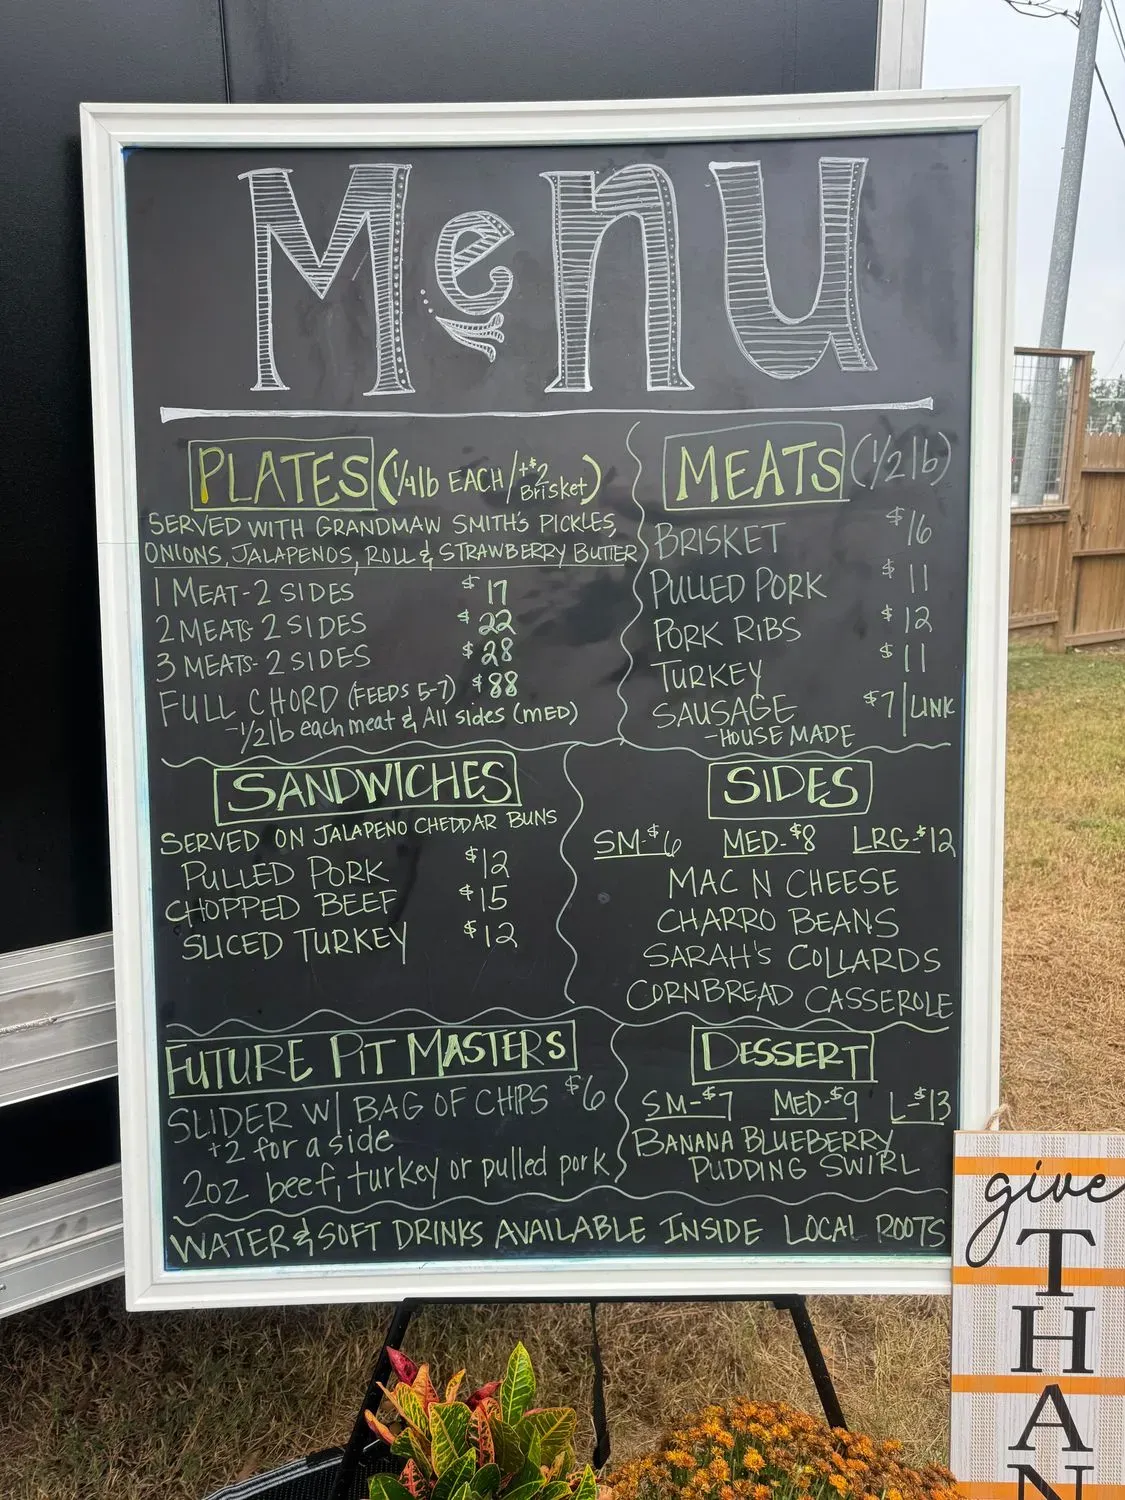 Menu
PLATES (1/4lb EACH/+$2 Brisket)
SERVED WITH GRANDMAW SMITH'S PICKLES,
ONIONS, JALAPENOS, ROLL & STRAWBERRY BUTTER
1 MEAT-2 SIDES $17
2 MEATS-2 SIDES $22
3 MEATS-2 SIDES $28
FULL CHORD (FEEDS 5-7) $88
-1/2lb each meat & All sides (MED)
MEATS (1/2lb)
BRISKET $16
PULLED PORK $11
PORK RIBS $12
TURKEY $11
SAUSAGE $7/LINK
-HOUSE MADE
SANDWICHES
SERVED ON JALAPENO CHEDDAR BUNS
PULLED PORK $12
CHOPPED BEEF $15
SLICED TURKEY $12
SIDES
SM-$6 MED-$8 LRG-$12
MAC N CHEESE
CHARRO BEANS
SARAH'S COLLARDS
CORNBREAD CASSEROLE
FUTURE PIT MASTERS
SLIDER W/ BAG OF CHIPS $6
+2 for a side
2oz beef, turkey or pulled pork
DESSERT
SM-$7 MED-$9 L-$13
BANANA BLUEBERRY
PUDDING SWIRL
WATER & SOFT DRINKS AVAILABLE INSIDE LOCAL ROOTS
give
T
H
A
N